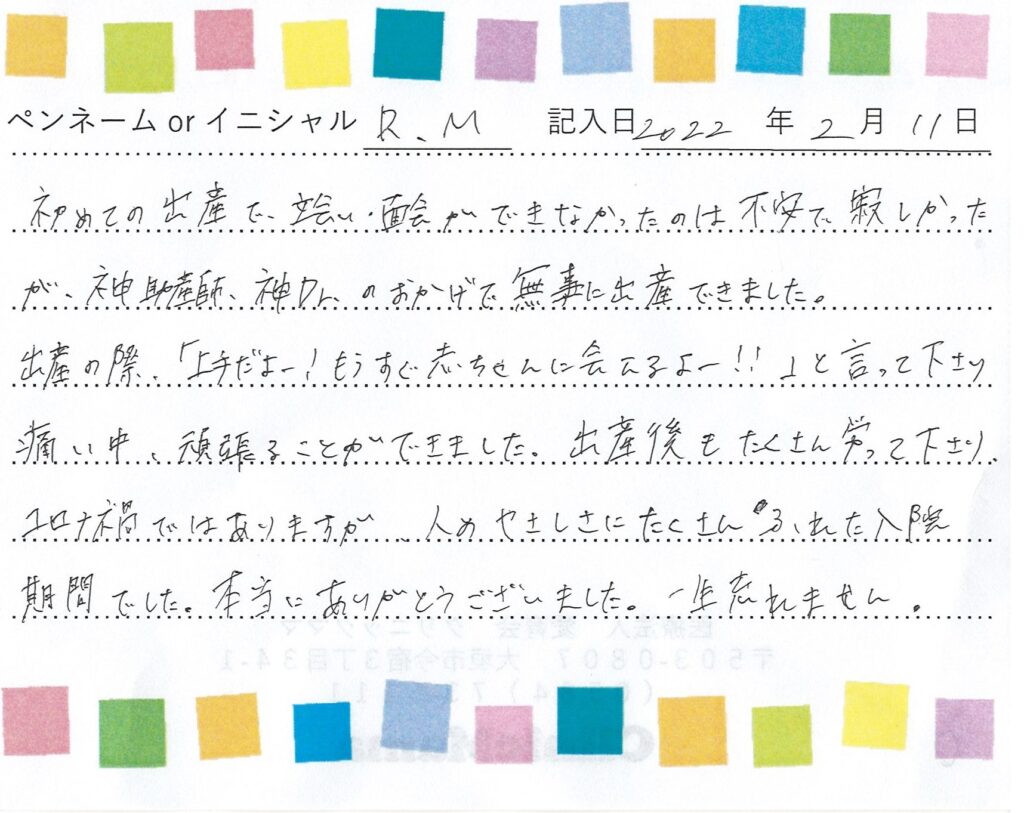 ペンネーム or イニシャル R.M 記入日 2022 年 2 月 11 日
初めての出産で、立会い・面会ができなかったのは不安で寂しかった
が、神助産師、神Dr.のおかげで無事に出産できました。
出産の際、「上手だよー!もうすぐ赤ちゃんに会えるよー!!」と言って下さり
痛い中、頑張ることができました。出産後もたくさん労って下さり、
コロナ禍ではありますが、人のやさしさにたくさんふれた入院
期間でした。本当にありがとうございました。一生忘れません。
医療法人 愛育会 クリニックママ
〒503-0807 大垣市今宿3丁目34-1